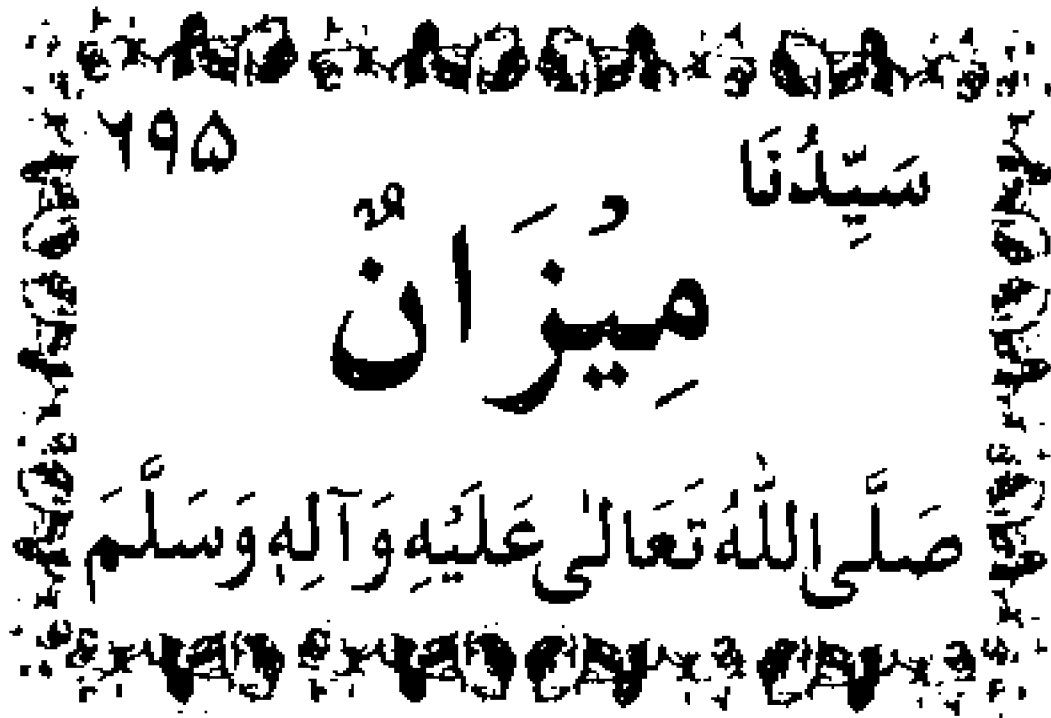 سَيِّدُنَا ۶۹۵
مِيْزَانٌ
صَلَّى اللّٰهُ تَعَالٰى عَلَيْهِ وَآلِهٖ وَسَلَّمَ